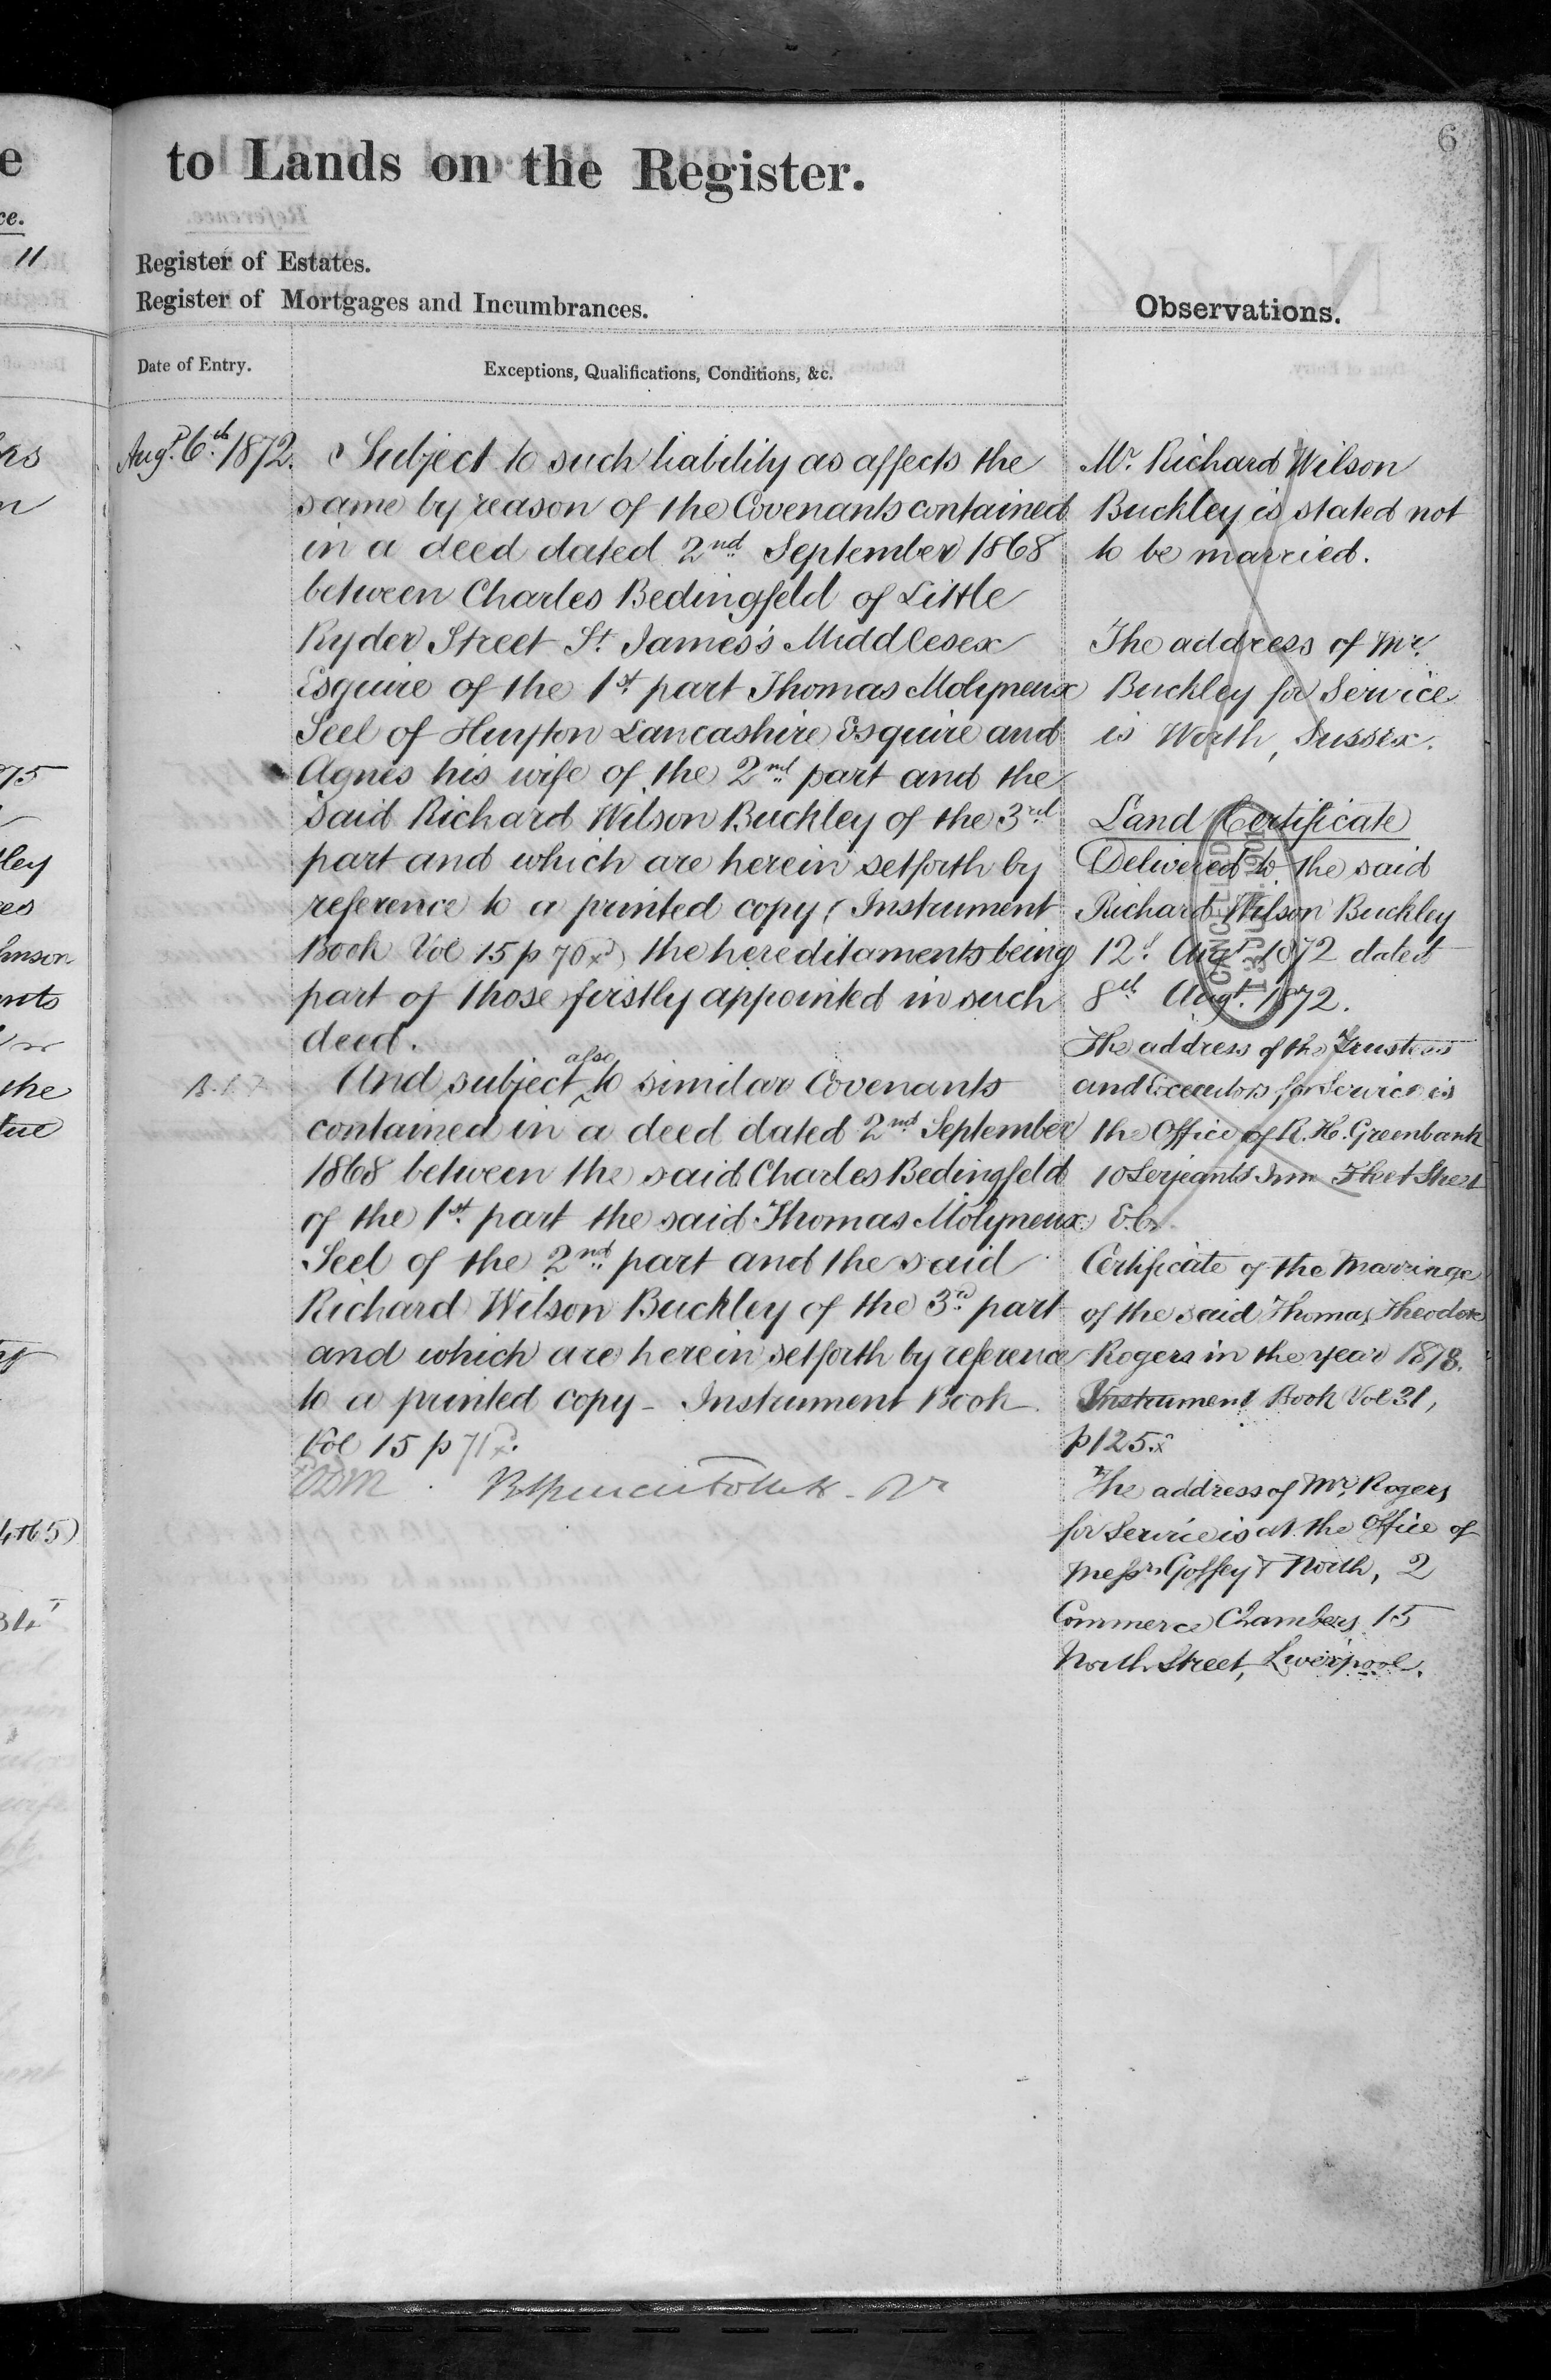 6
to Lands on the Register.
Register of Estates.
Register of Mortgages and Incumbrances.
Observations.
Date of Entry.
Exceptions, Qualifications, Conditions, &c.
Augt. 6th. 1872.
Subject to such liability as affects the
same by reason of the Covenants contained
in a deed dated 2nd September 1868
between Charles Bedingfeld of Little
Ryder Street St. James's Middlesex
Esquire of the 1st part Thomas Molyneux
Seel of Huyton Lancashire Esquire and
Agnes his wife of the 2nd part and the
said Richard Wilson Buckley of the 3rd
part and which are herein setforth by
reference to a printed copy (Instrument
Book Vol 15 p 70x) the hereditaments being
part of those firstly appointed in such
deed.
And subject also to similar Covenants
contained in a deed dated 2nd September
1868 between the said Charles Bedingfeld
of the 1st part the said Thomas Molyneux
Seel of the 2nd part and the said
Richard Wilson Buckley of the 3d. part
and which are herein setforth by reference
to a printed copy - Instrument Book
Vol 15 p 71x.
Mr. Richard Wilson
Buckley is stated not
to be married.
The address of Mr.
Buckley for Service
is Worth, Sussex.
Land Certificate
Delivered to the said
Richard Wilson Buckley
12th Augt 1872 dated
8th Augt. 1872.
CANCELLED
The address of the Trustees
and Executors for Service is
the Office of R. H. Greenbank
10 Serjeants Inn Fleet Street
E.C.
Certificate of the Marriage
of the said Thomas Theodore
Rogers in the year 1878.
Instrument Book Vol 31,
p 125.x
The address of Mr. Rogers
for Service is at the Office of
Messrs Goffey & North, 2
Commerce Chambers 15
North Street, Liverpool.